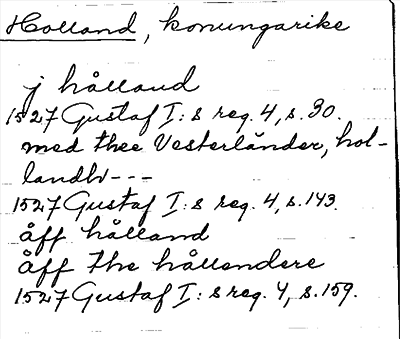 Holland, konungarike
j hålland
1527 Gustaf I:s reg. 4, s. 30.
med thee Vesterländer, hol-
landh---
1527 Gustaf I:s reg. 4, s. 143.
åff hålland
åff the hållendere
1527 Gustaf I:s reg. 4, s. 159.